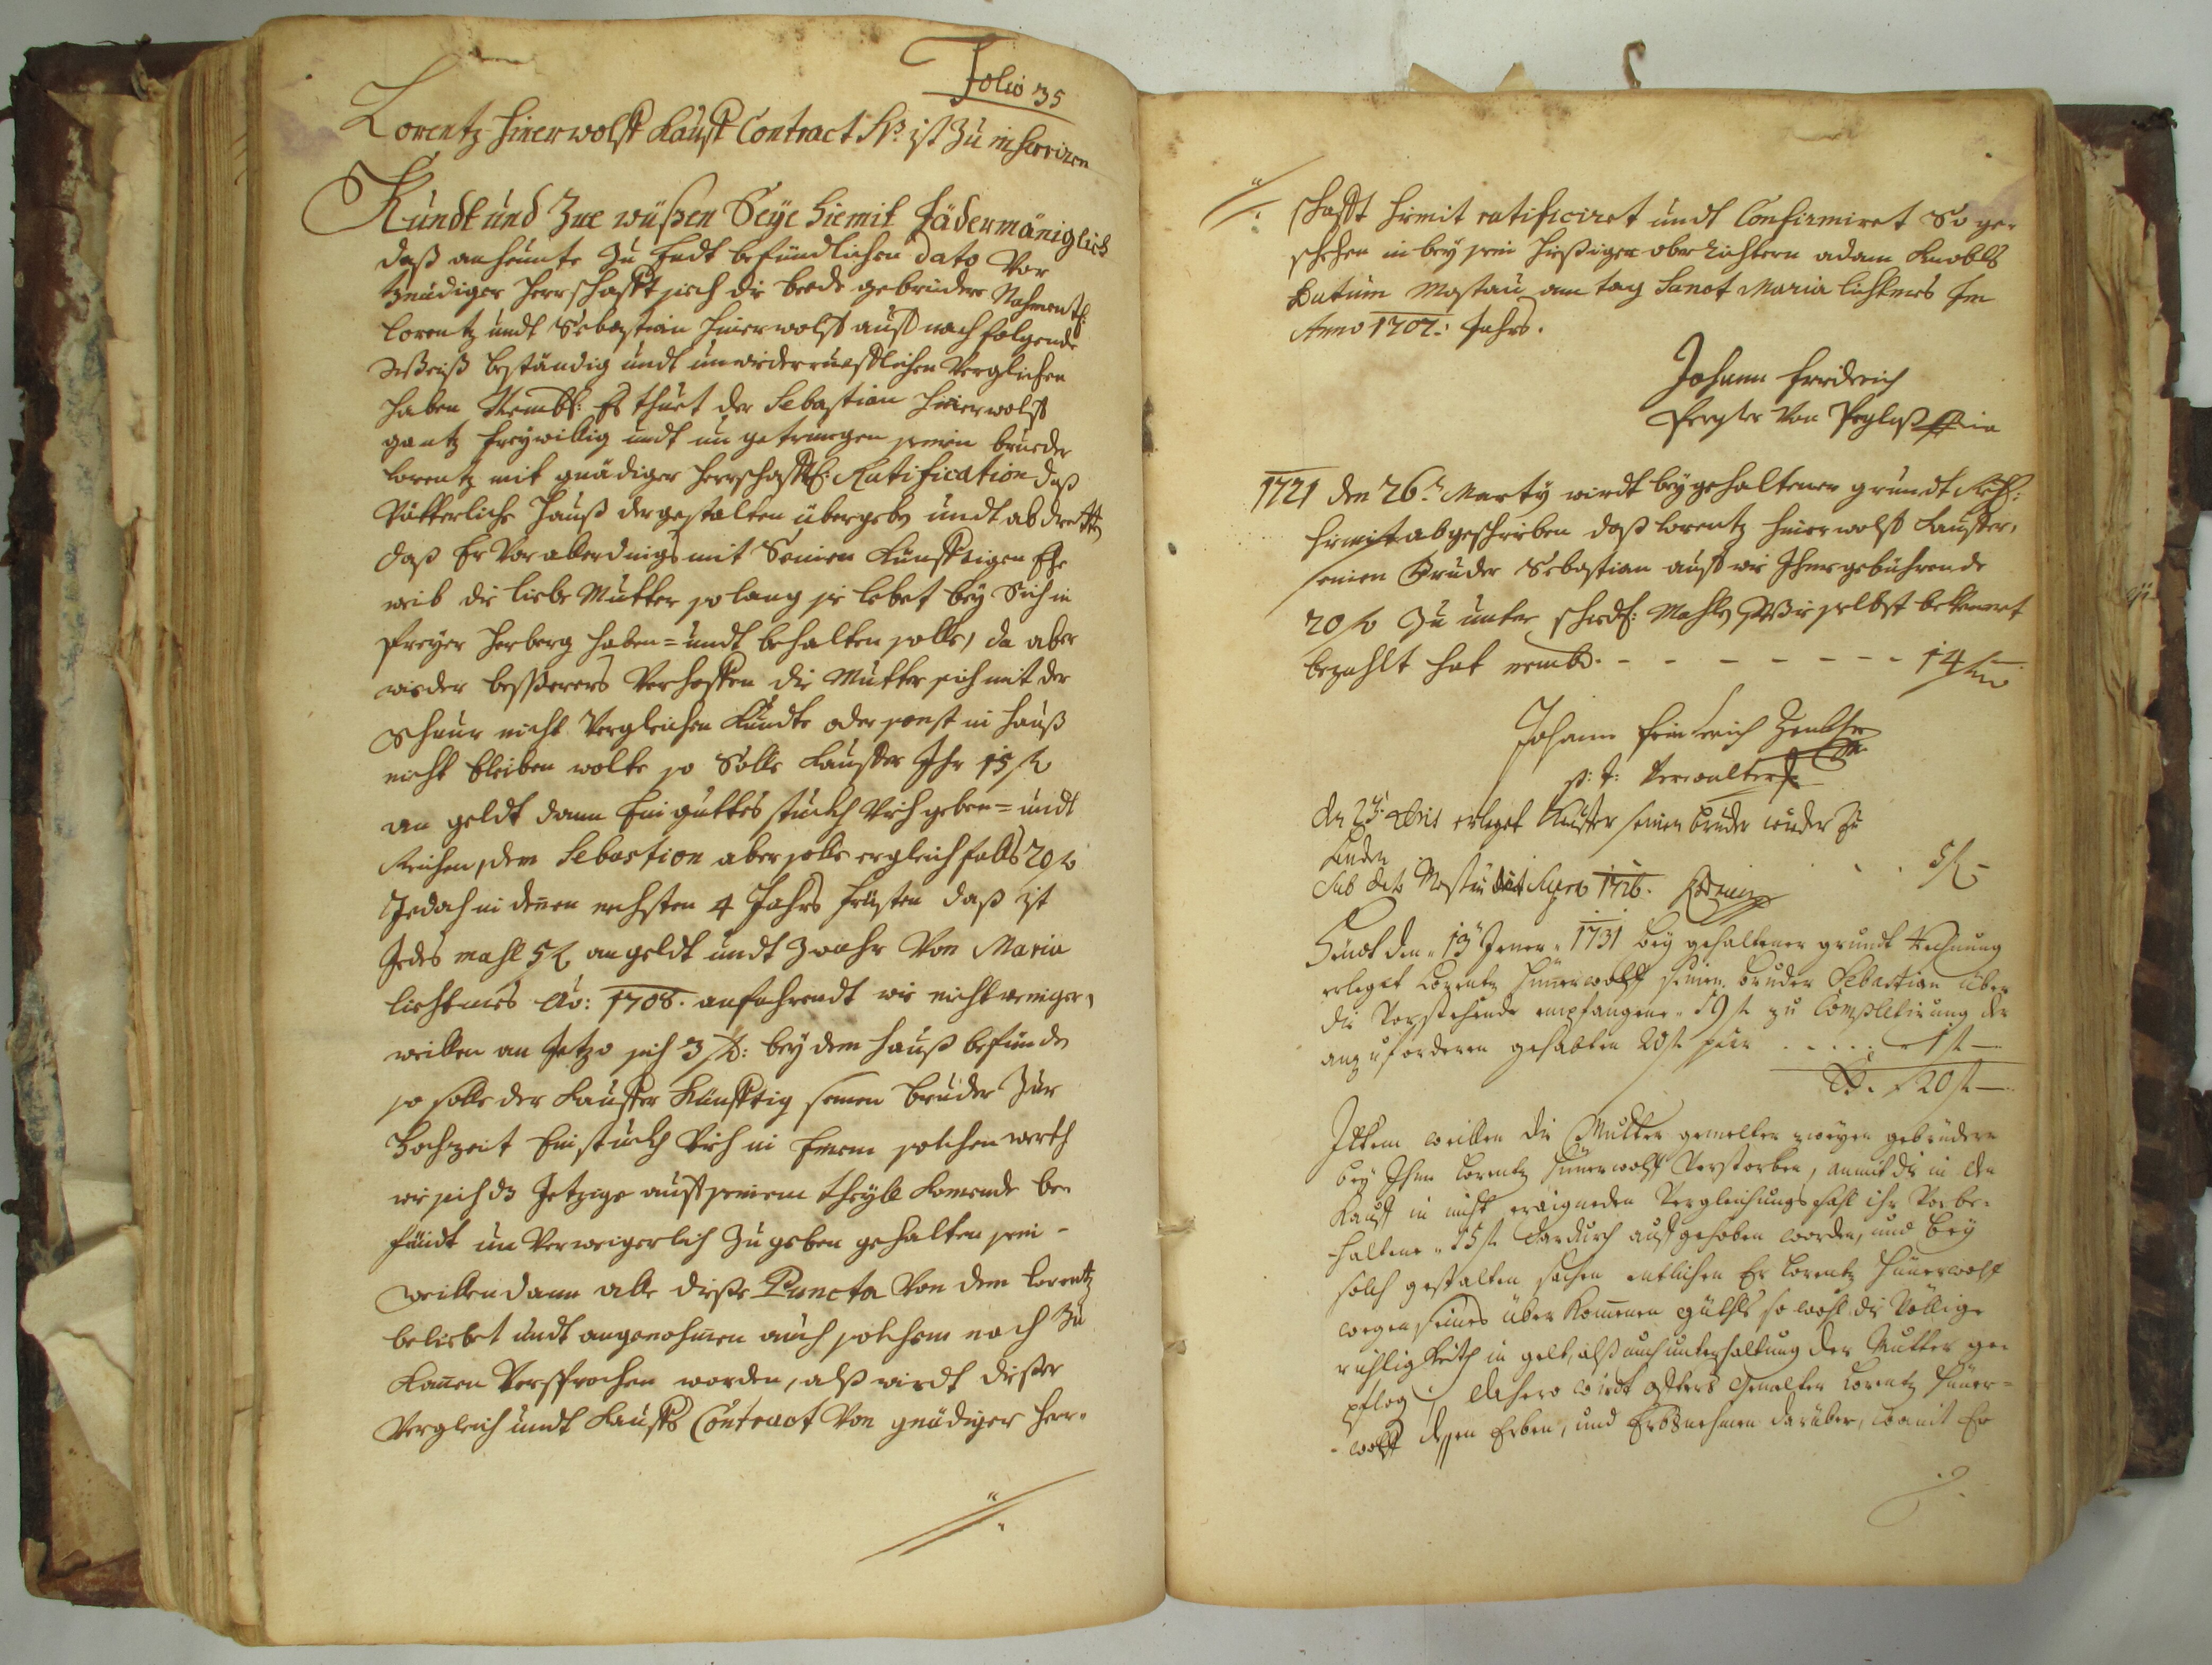 Folio 35
Lorentz Hüerwolff Kauff Contract No. ist Zu inseriren
Kundt und Zue wüßen Seye hiemit Jädermäniglich
daß anheunte zu Endt befündlichen dato Vor
gnädiger Herrschafft sich die beede gebrüder Nahmentl:
Lorentz undt Sebastian Hüerwolff auff nachfolgende
Weiß beständig undt unwiederruefflichen Verglichen
haben Nembl: Es thuet der Sebastian Hüerwolff
gantz freywillig undt un getrungen seinen bruder
Lorentz mit gnädiger Herrschafftl: Ratification daß
Vätterliche Hauß dergestalten übergeben undt abdretten
daß Er Vor allerdings mit Seinen Künfftigen Ehe
weib die liebe Mutter so lang sie lebet bey Sich in
freyer Herberg haben = undt behalten solle, da aber
wieder besserers Verhoffen die Mutter sich mit der
Schnur nicht Vergleichen Kündte oder sonst in Hauß
nicht bleiben wolte so Solle Kauffer Ihr 15 fl
an geldt dann Ein guttes stuckh Vieh geben = undt
Reichen, dem Sebastian aber solle er gleichfalls 20 fl
Jedoch in denen nechsten 4 Jahrs früsten daß ist
Jedes mahl 5 fl an geldt undt zwahr Von Maria
lichtmes Ao: 1708. anfahendt wie nicht weniger,
weillen an Jetzo sich 3 St: bey dem Hauß befünden
so solle der Kauffer Künfftig seinen bruder Zur
Hochzeit Ein stuckh Vieh in Einem solchen werth
wie sich ds Jetzige auff seinem theyll Komende be-
fündt un Verweigerlich Zugeben gehalten sein -
weillen dann alle diese Puncta Von dem Lorentz
beliebet undt angenohmen auch solchem nach Zu
Kommen Versprochen worden, alß wirdt dießer
Vergleich undt Kauffs Contract Von gnädiger Herr-
schafft hiemit ratificiret undt Confirmiret So ge-
schehen in bey sein hießigen ober Richtern adam Knobls
Datum Mostau am tag Sanct Maria lichtmes Im
Anno 1707: Jahrs.
Johann Friderich
Pergler Von Perglaß
1721 den 26t Marty wirdt bey gehaltener grundt Rech:
hiemit abgeschrieben daß Lorentz Hüerwolff Kauffer,
seinen Bruder Sebastian auff die Ihme gebührende
20 fl Zu unter schiedl: Mahlen Wie selbst bekennet
bezahlt hat nembl. - - - - - - - - 14 fl
Johann Friederich
p: t: Verwalter
den 2t: erleget Kauffer seinen bruder wieder Zu
Handen
Sub dato Mostau 1726. 5 fl -
Heut den 13 Jener 1731 bey gehaltener grundt Rechnung
erleget Lorentz Hünerwolff seinen bruder Sebastian über
die Vorstehende empfangene 19 fl zu Completirung der
anzuforderen gehabten 20 fl hier - - - - 1 fl -
20 fl -
Ittem weillen die Mutter gemelter zweyen gebrüdere
bey Ihm Lorentz Hünerwolff Verstorben, anmit die in den
Kauff in nicht ereigneden Vergleichungs fahl ihr Vorbe-
-haltene 15 fl dardurch auffgehoben worden, und bey
solch gestalten sachen entlichen Er Lorentz Hünerwolff
wegen seines über Kommenen güthls so wohl die Völlige
richtigkeith in gelt, alß auch unterhaltung der Mutter ge-
pflog; dahero wirdt Lorentz Hüner=
-wolff dessen Erben, und Erbsnehmen darüber, womit Er